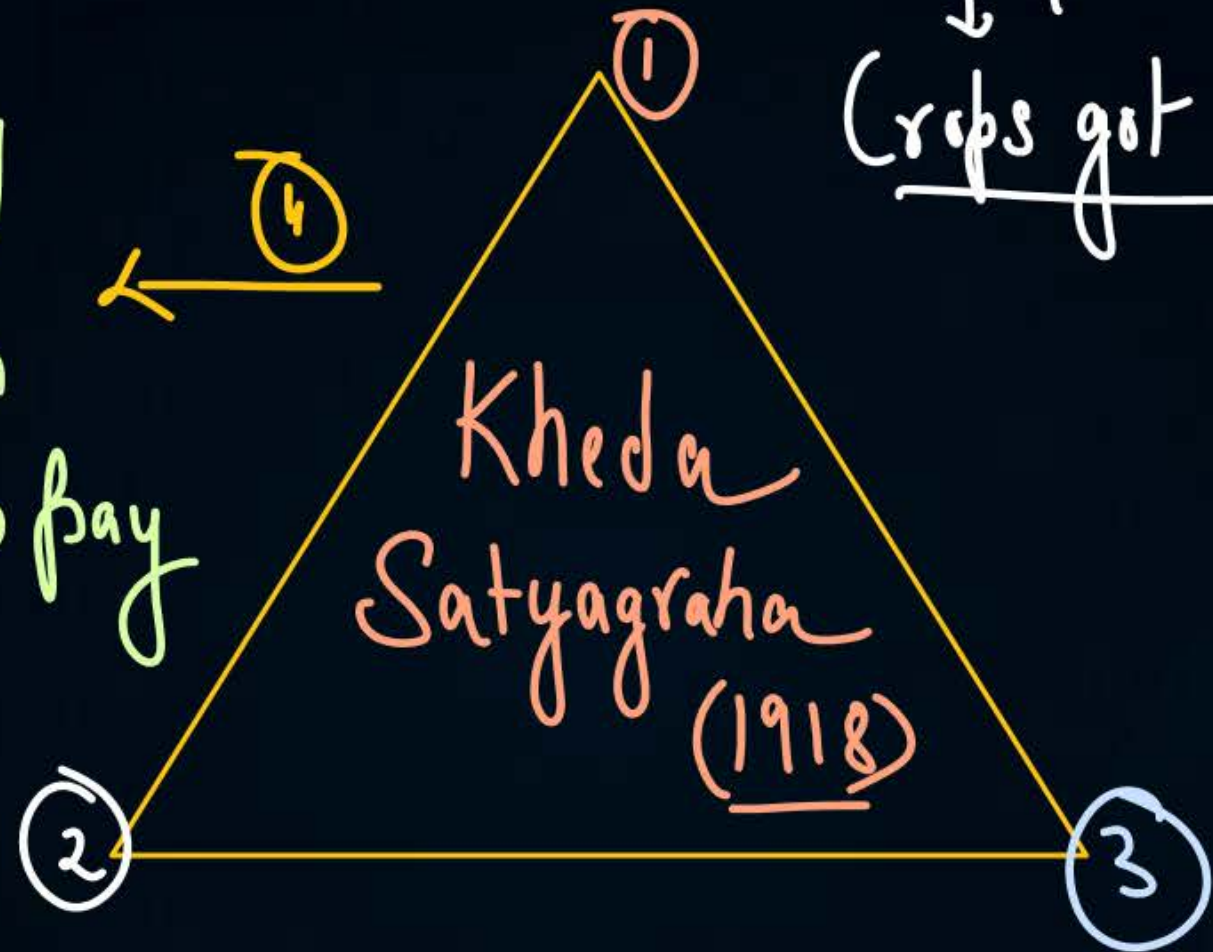 1
Crops got
4
Kheda
pay
Satyagraha
(1918)
2
3